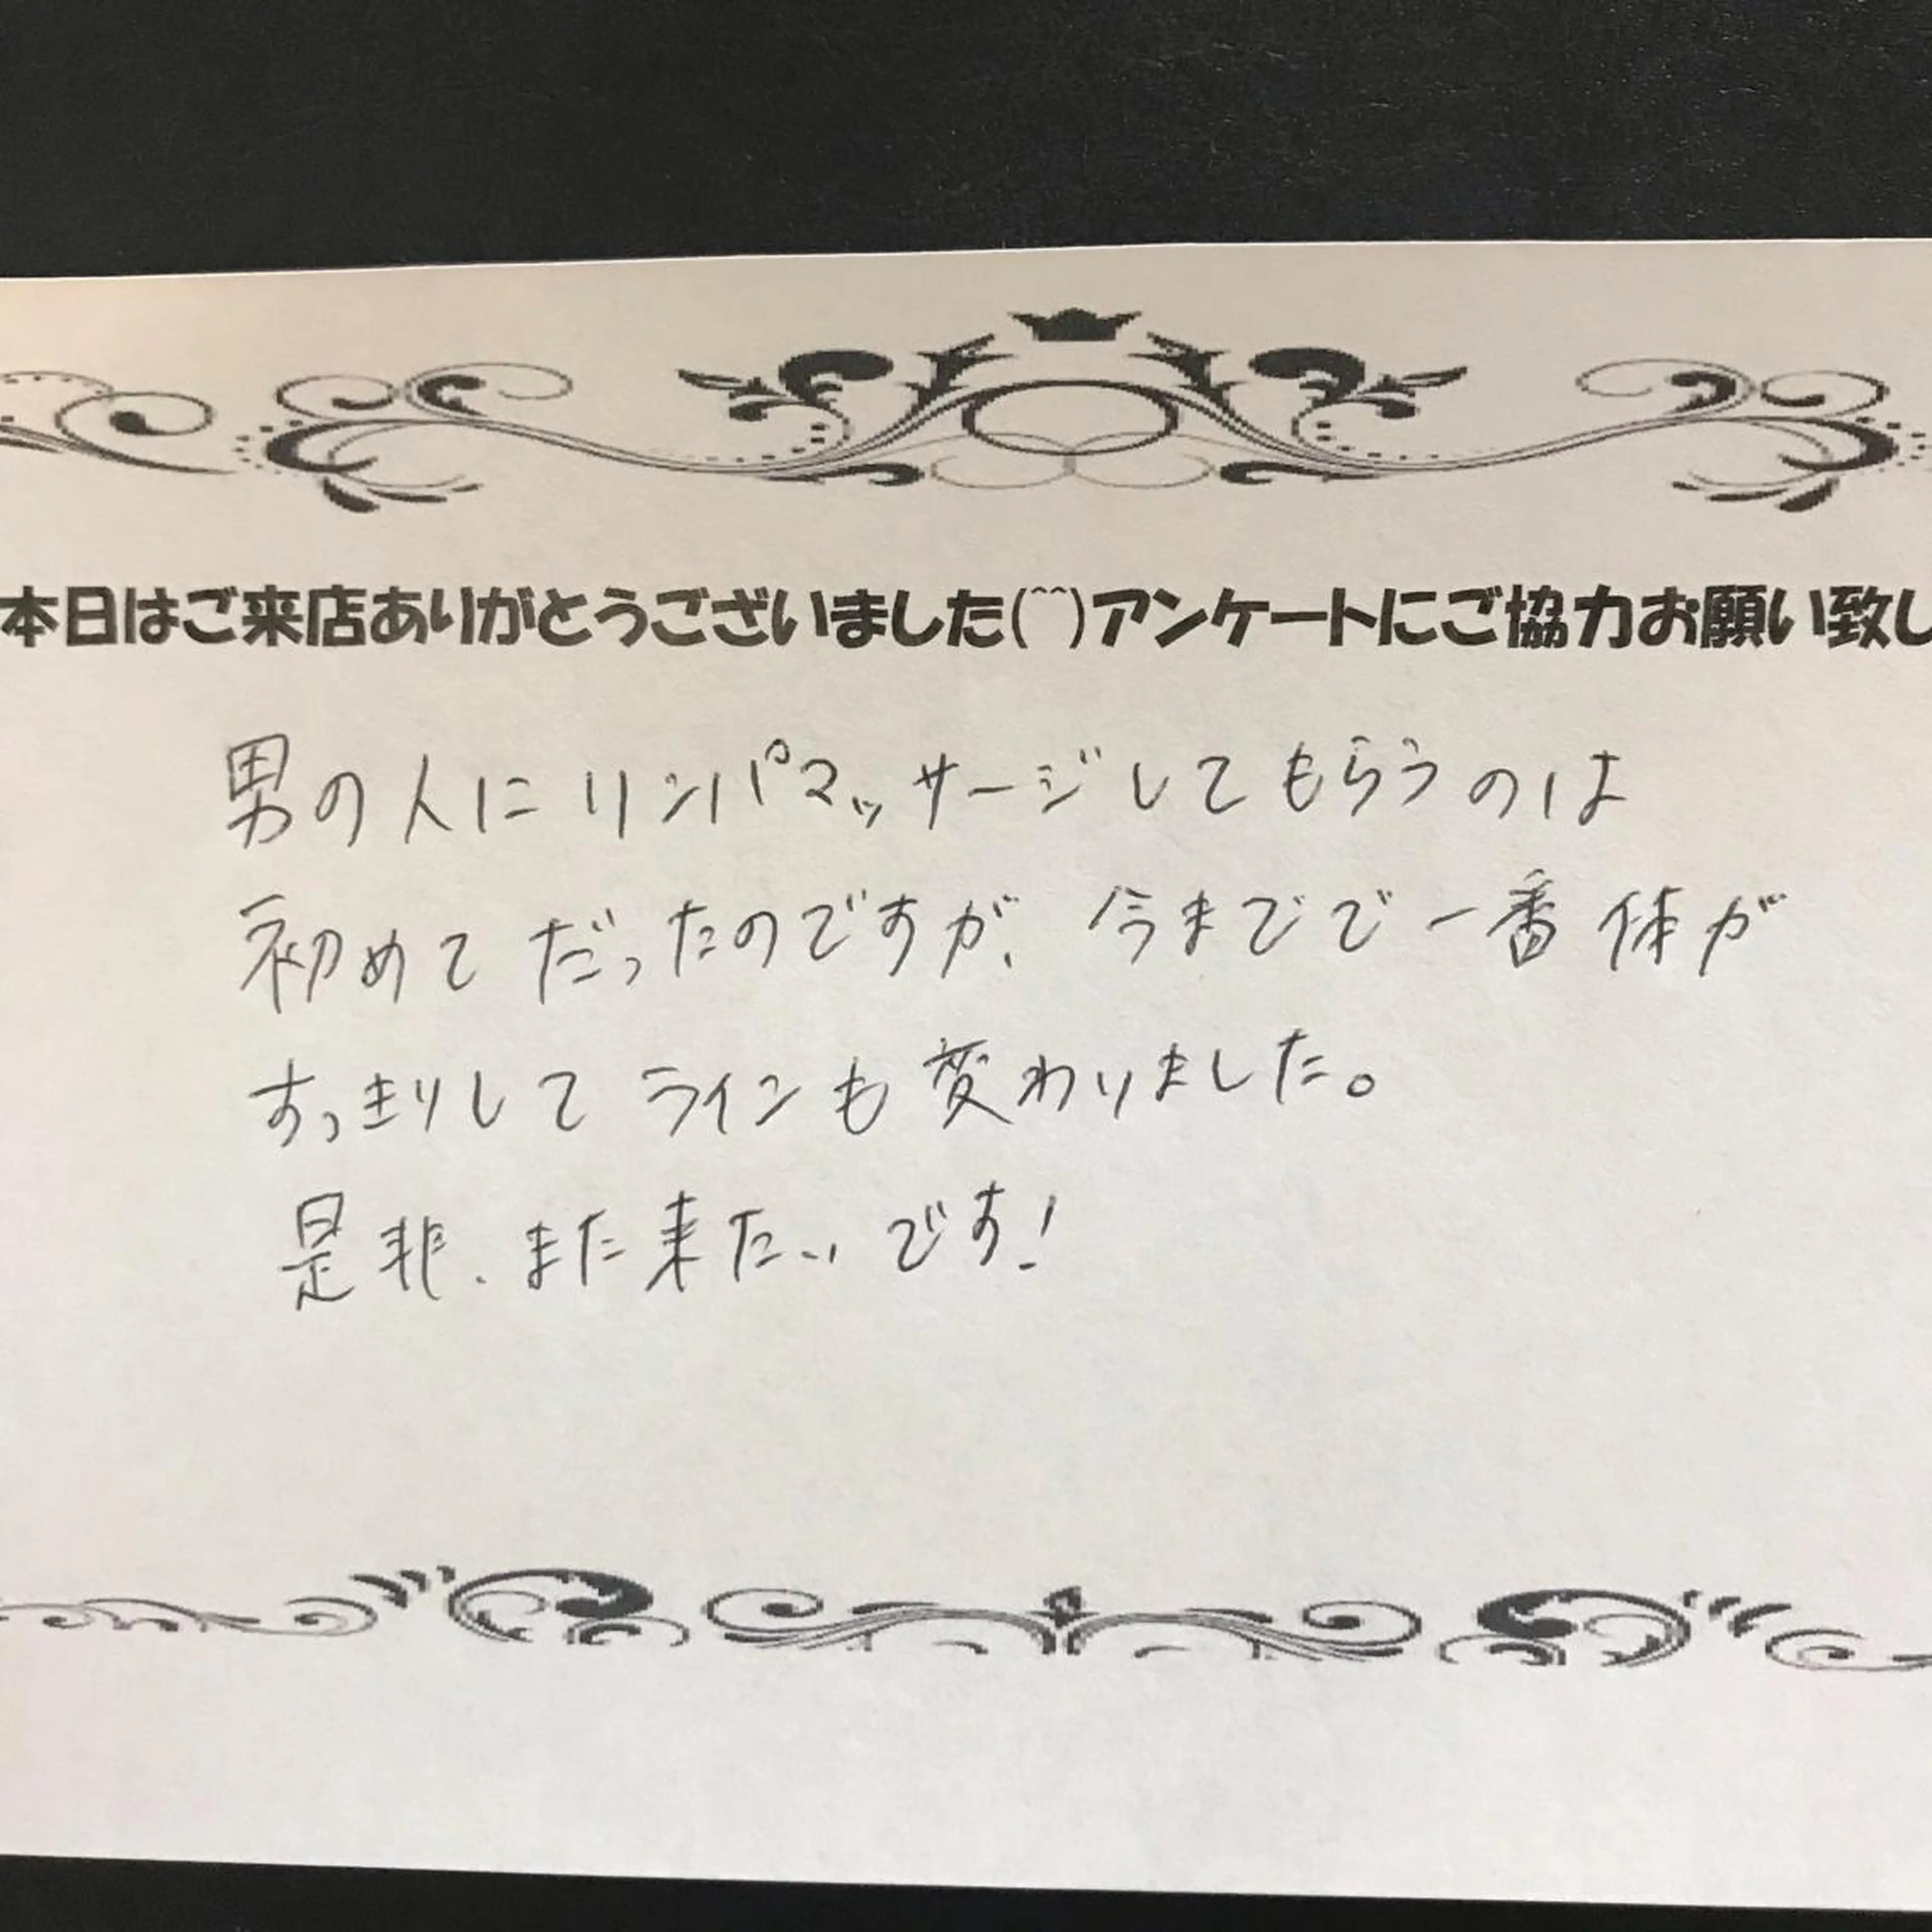 本日はご来店ありがとうございました(^^)アンケートにご協力お願い致し
男の人にリンパマッサージしてもらうのは
初めてだったのですが、今までで一番体が
すっきりしてラインも変わりました。
是非、また来たいです!